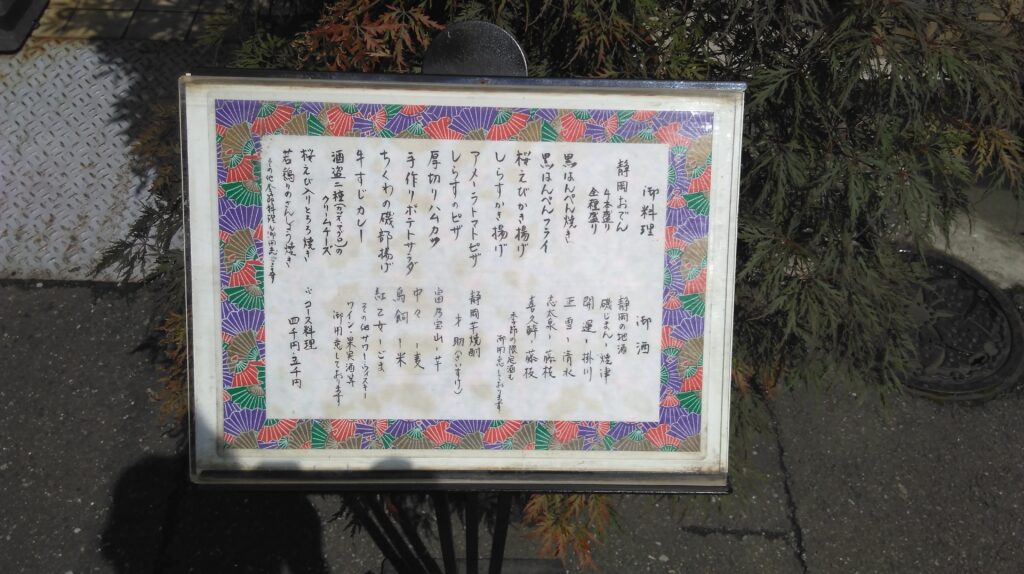 御料理
静岡おでん
4本盛り
全種盛り
黒はんぺん焼き
黒はんぺんフライ
桜えびかき揚げ
しらすかき揚げ
アメーラトマトピザ
しらすのピザ
厚切りハムカツ
手作りポテトサラダ
ちくわの磯部揚げ
牛すじカレー
酒盗二種(カツオ・マグロ)の
クリームチーズ
桜えび入りとろろ焼き
若鶏りのさんしょう焼き
その他季節料理も御用意しております
御酒
静岡の地酒
磯じまん・焼津
開運ー掛川
正雪ー清水
志太泉ー藤枝
喜久酔ー藤枝
季節の限定酒も
御用意しております
静岡芋焼酎
才助(さいすけ)
富乃宝山ー芋
中々ー麦
鳥飼ー米
紅乙女ーごま
その他サワー・ウィスキー
ワイン・果実酒等
御用意しております。
☆コース料理
四千円・五千円